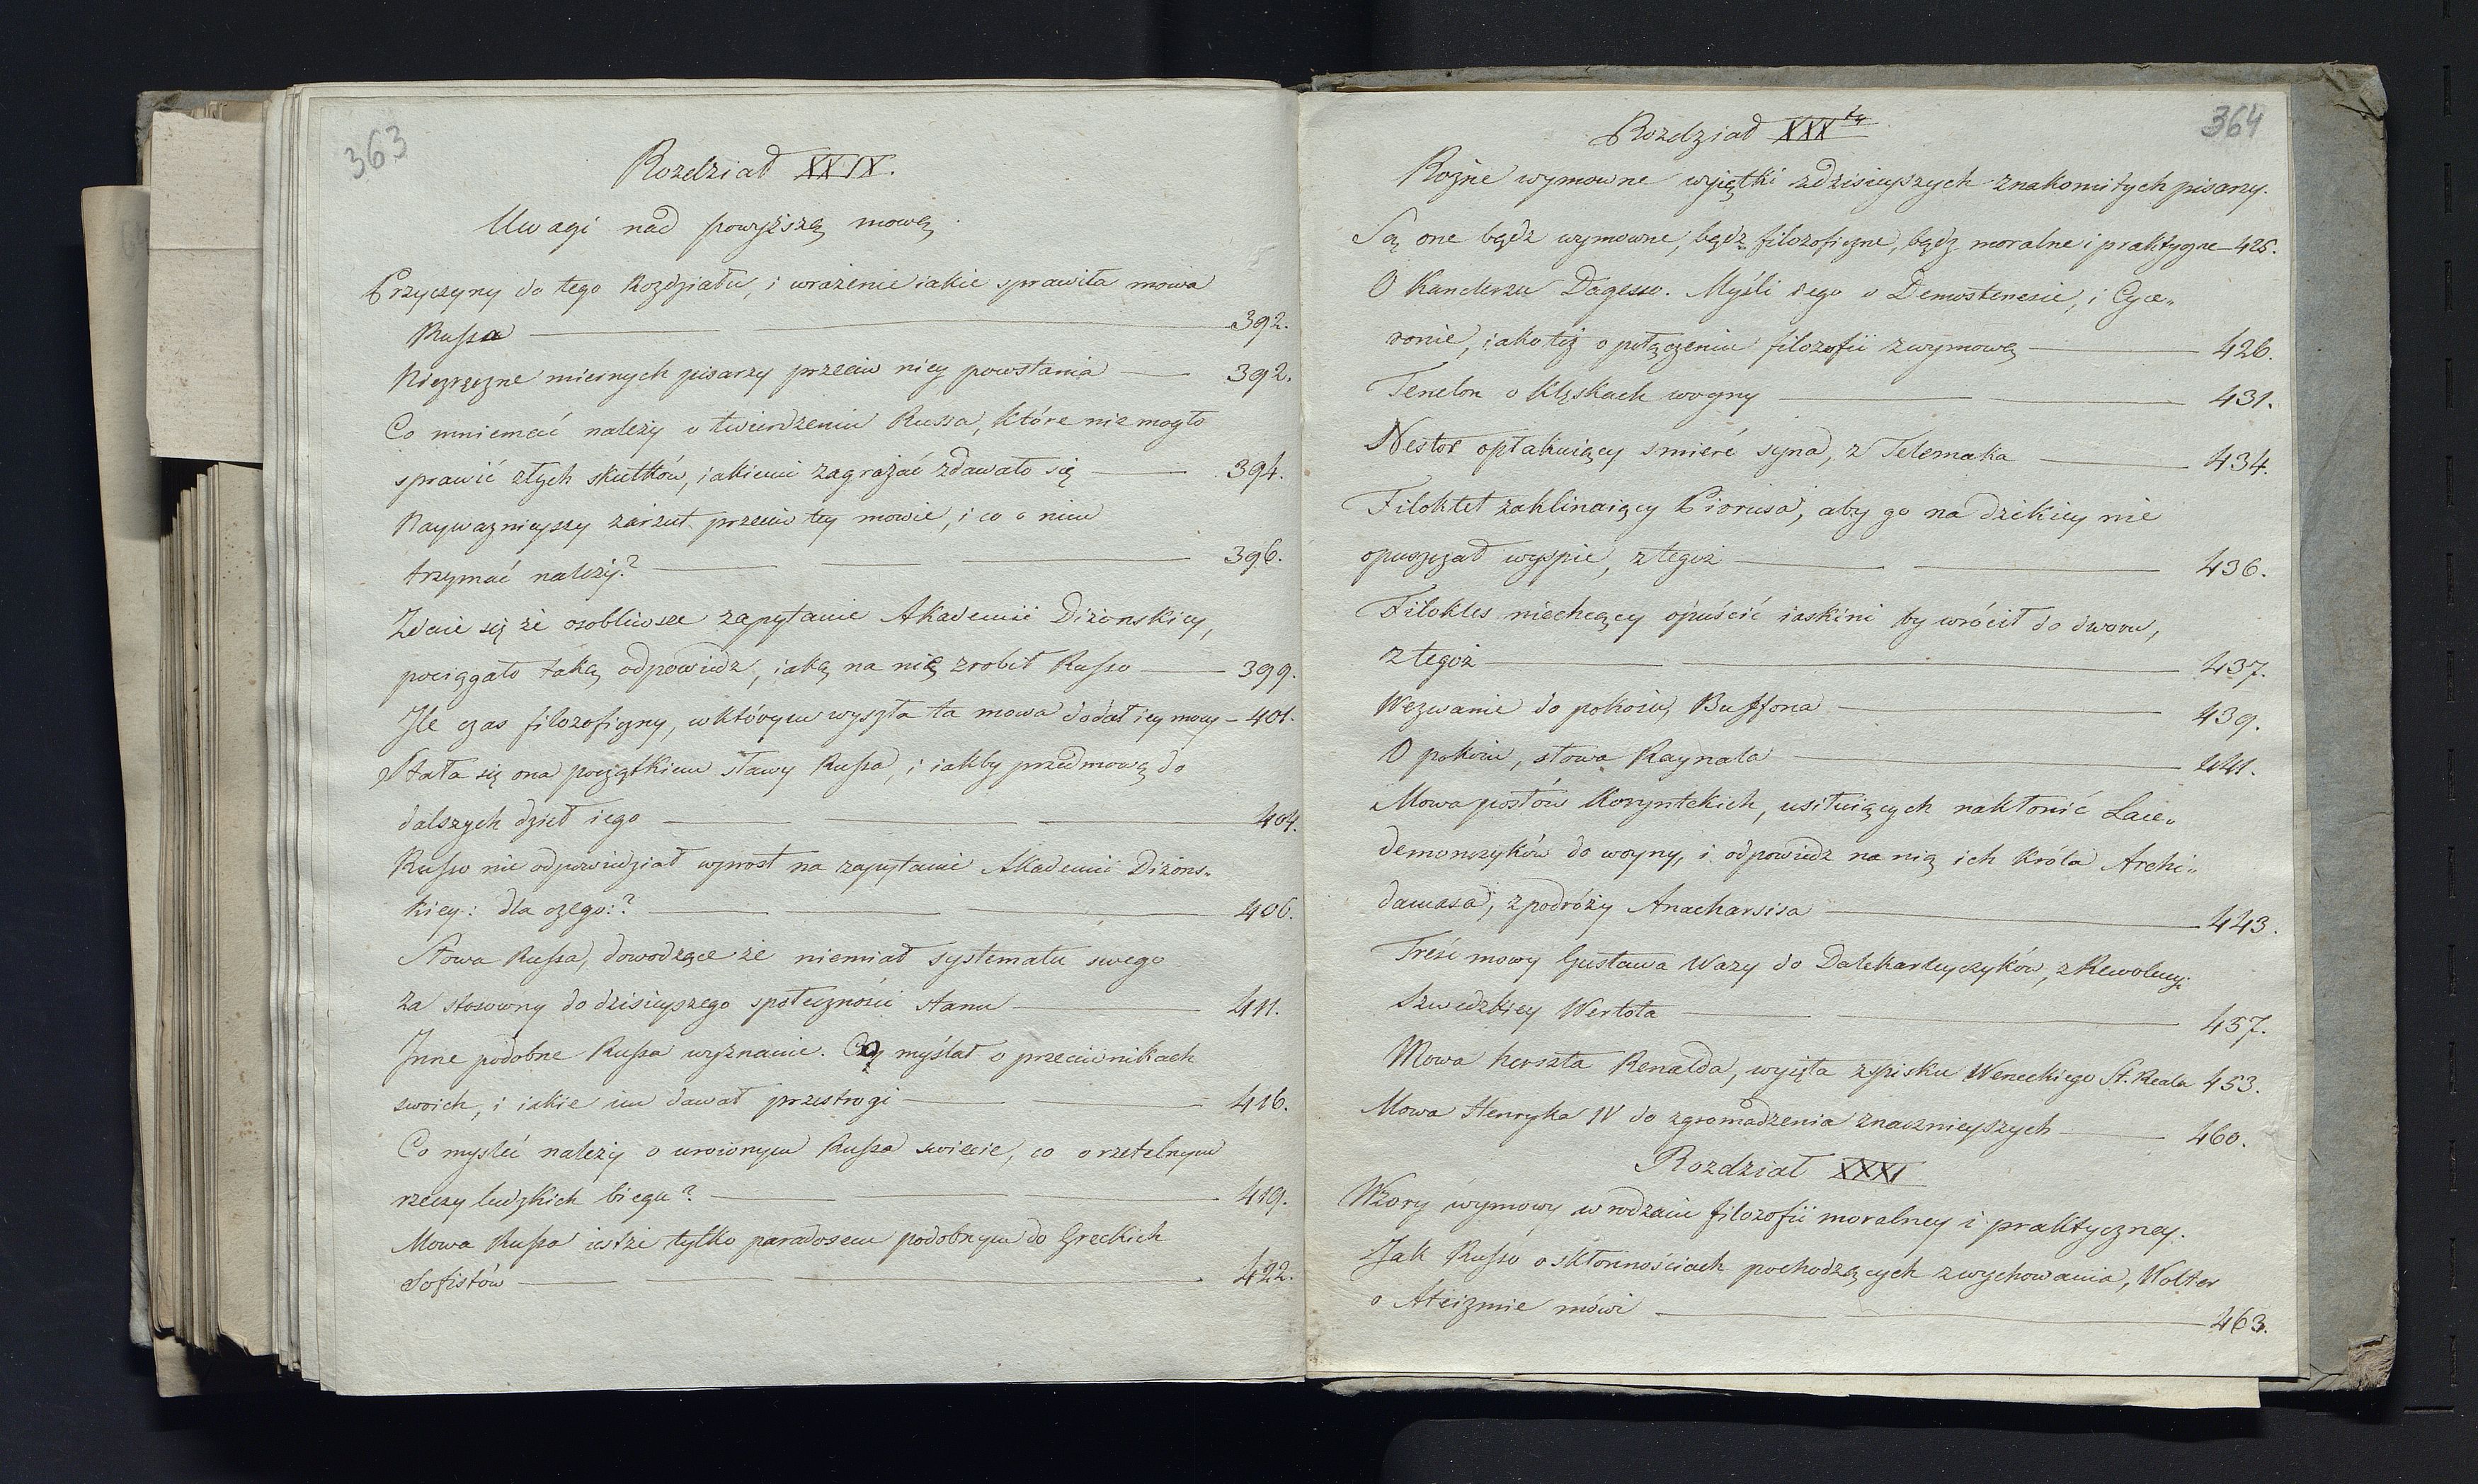 363
Rozdział XXIX.
Uwagi nad powyższą mową
Przyczyny do tego Rozdziału, i wrażenie iakie sprawiła mowa
Russa 392.
Niezręczne miernych pisarzy przeciw niey powstania 392.
Co mniemać należy o twierdzeniu Russa, które nie mogło
sprawić złych skutków, iakiemi zagrażać zdawało się 394.
Nayważnieyszy zarzut przeciw tey mowie, i co o nim
trzymać należy? 396.
Zdaie się że osobliwsze zapytanie Akademii Diżonskiey,
pociągało taką odpowiedz, iaką na nię zrobił Russo 399.
Ile czas filozoficzny, w którym wyszła ta mowa dodał iey mocy 401.
Stała się ona początkiem sławy Russa, i iakby przedmową do
dalszych dzieł iego 404.
Russo nie odpowiedział wprost na zapytanie Akademii Diżons„
kiey: dla czego:? 406.
Słowa Russa, dowodzące że niemiał systematu swego
za stosowny do dzisieyszego społeczności stanu 411.
Inne podobne Russa wyznanie. Co myślał o przeciwnikach
swoich, i iakie im dawał przestrogi 416.
Co mysleć należy o uroionym Russa swiecie, co o rzetelnym
rzeczy ludzkich biegu? 419.
Mowa Russa iestże tylko paradosem podobnym do Greckich
Sofistów 422.
364
Rozdział XXXty
Rożne wymowne wyiątki zdzisieyszych znakomitych pisarzy.
Są one bądz wymowne, bądz filozoficzne, bądz moralne i praktyczne 425.
O Kanclerzu Dagesso. Myśli iego o Demostenesie, i Cyce„
ronie, iako też o połączeniu filozofii z wymową 426.
Fenelon o klęskach woyny 431.
Nestor opłakuiący smierć syna, z Telemaka 434.
Filoktet zaklinaiący Pirrusa, aby go na dzikiey nie
opuszczał wyspie, z tegoż 436.
Filokles niechcący opuścić iaskini by wrócił do dworu,
z tegoż 437.
Wezwanie do pokoiu, Buffona 439.
O pokoiu, słowa Raynala 441.
Mowa posłów Korynckich, usiłuiących nakłonić Lace„
demończyków do woyny, i odpowiedz na nią ich Króla Archi„
damasa, z podróży Anacharsisa 443.
Treść mowy Gustawa Wazy do Dalekarleyczyków, z Rewolucyi
Szwedzkiey Wertota 457.
Mowa herszta Renalda, wyięta z spisku Weneckiego St. Reala 453.
Mowa Henryka IV do zgromadzenia znacznieyszych 460.
Rozdział XXXI
Wzory wymowy w rodzaiu filozofii moralney i praktyczney.
Jak Russo o skłonnościach pochodzących z wychowania, Wolter
o Ateizmie mówi 463.